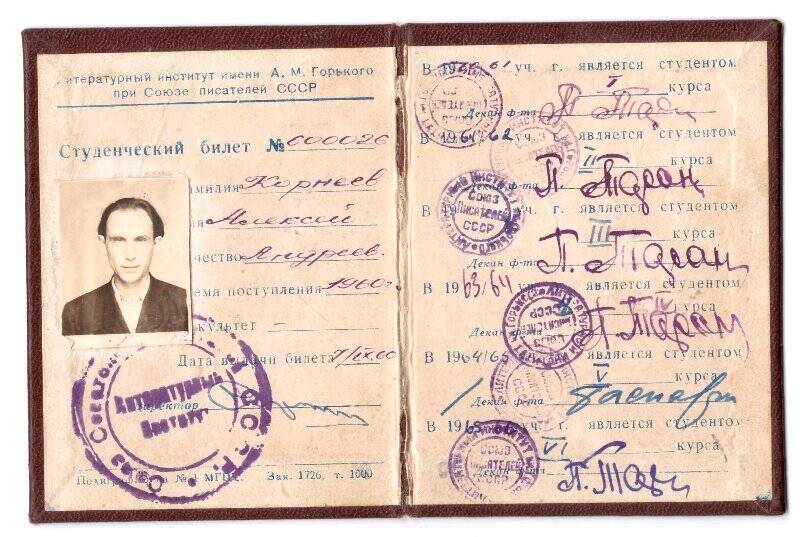 Литературный институт имени А. М. Горького
при Союзе писателей СССР
Студенческий билет № 000026
Фамилия Корнеев
Алексей
Отчество Андреев.
Время поступления 1960 г.
Факультет –
Дата выдачи билета 7/IX.60
Директор
Литературный
Институт
Зак. 1726, т. 1000
В 1960/61 уч. г. является студентом
I курса
Декан ф-та П. Таран
В 1961/62 уч. г. является студентом
II курса
Декан ф-та П. Таран
уч. г. является студентом
III курса
Декан ф-та П. Таран
В 1963/64 уч. г. является студентом
IV курса
Декан ф-та П. Таран
В 1964/65 является студентом
V курса
Декан ф-та
В 196 уч. г. является студентом
VI курса
Декан ф-та П. Таран
СОЮЗ
ПИСАТЕЛЕЙ
СССР